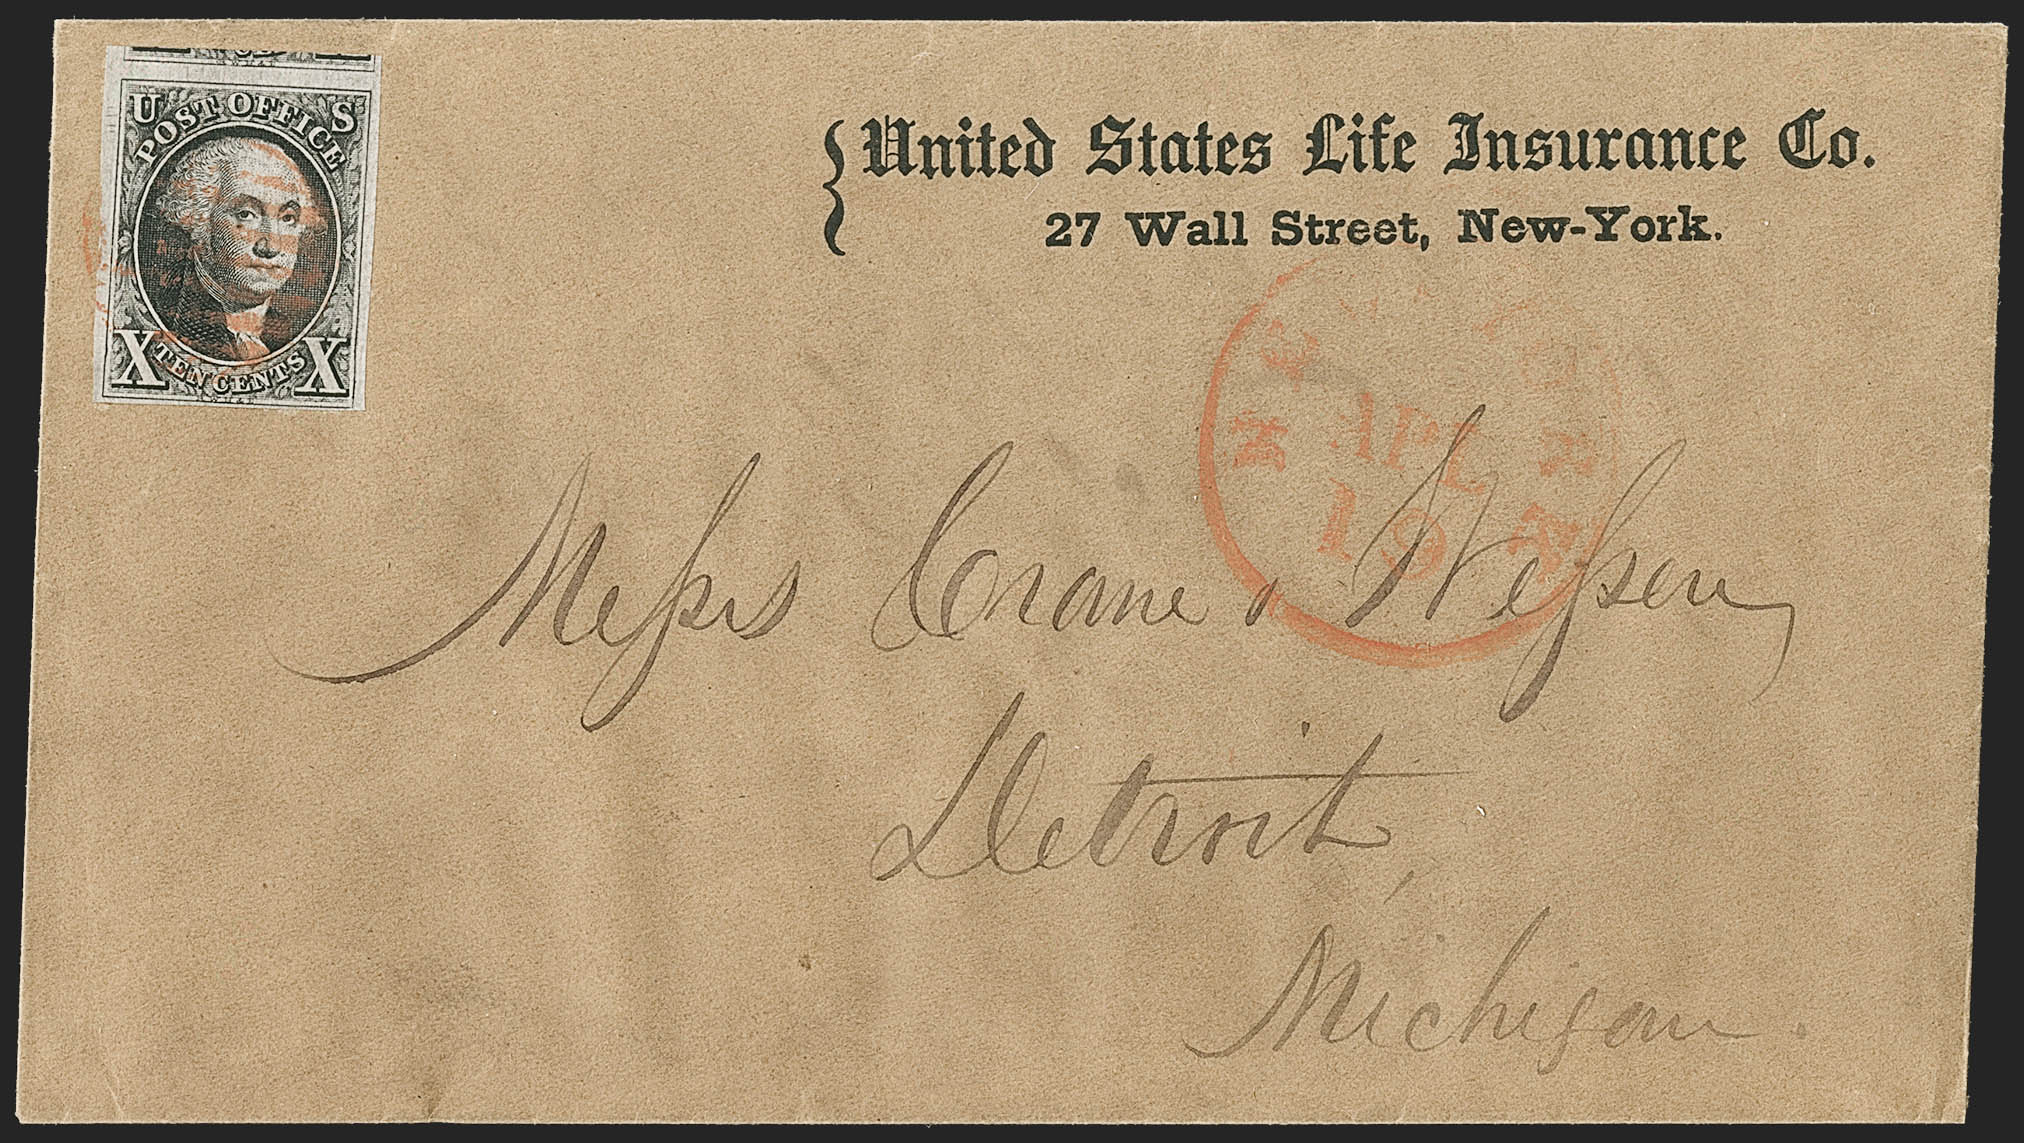 U S
POST OFFICE
X TEN CENTS X
United States Life Insurance Co.
27 Wall Street, New-York.
NEW-YORK
APL
19
Messrs Crane & Wesson
Detroit,
Michigan.